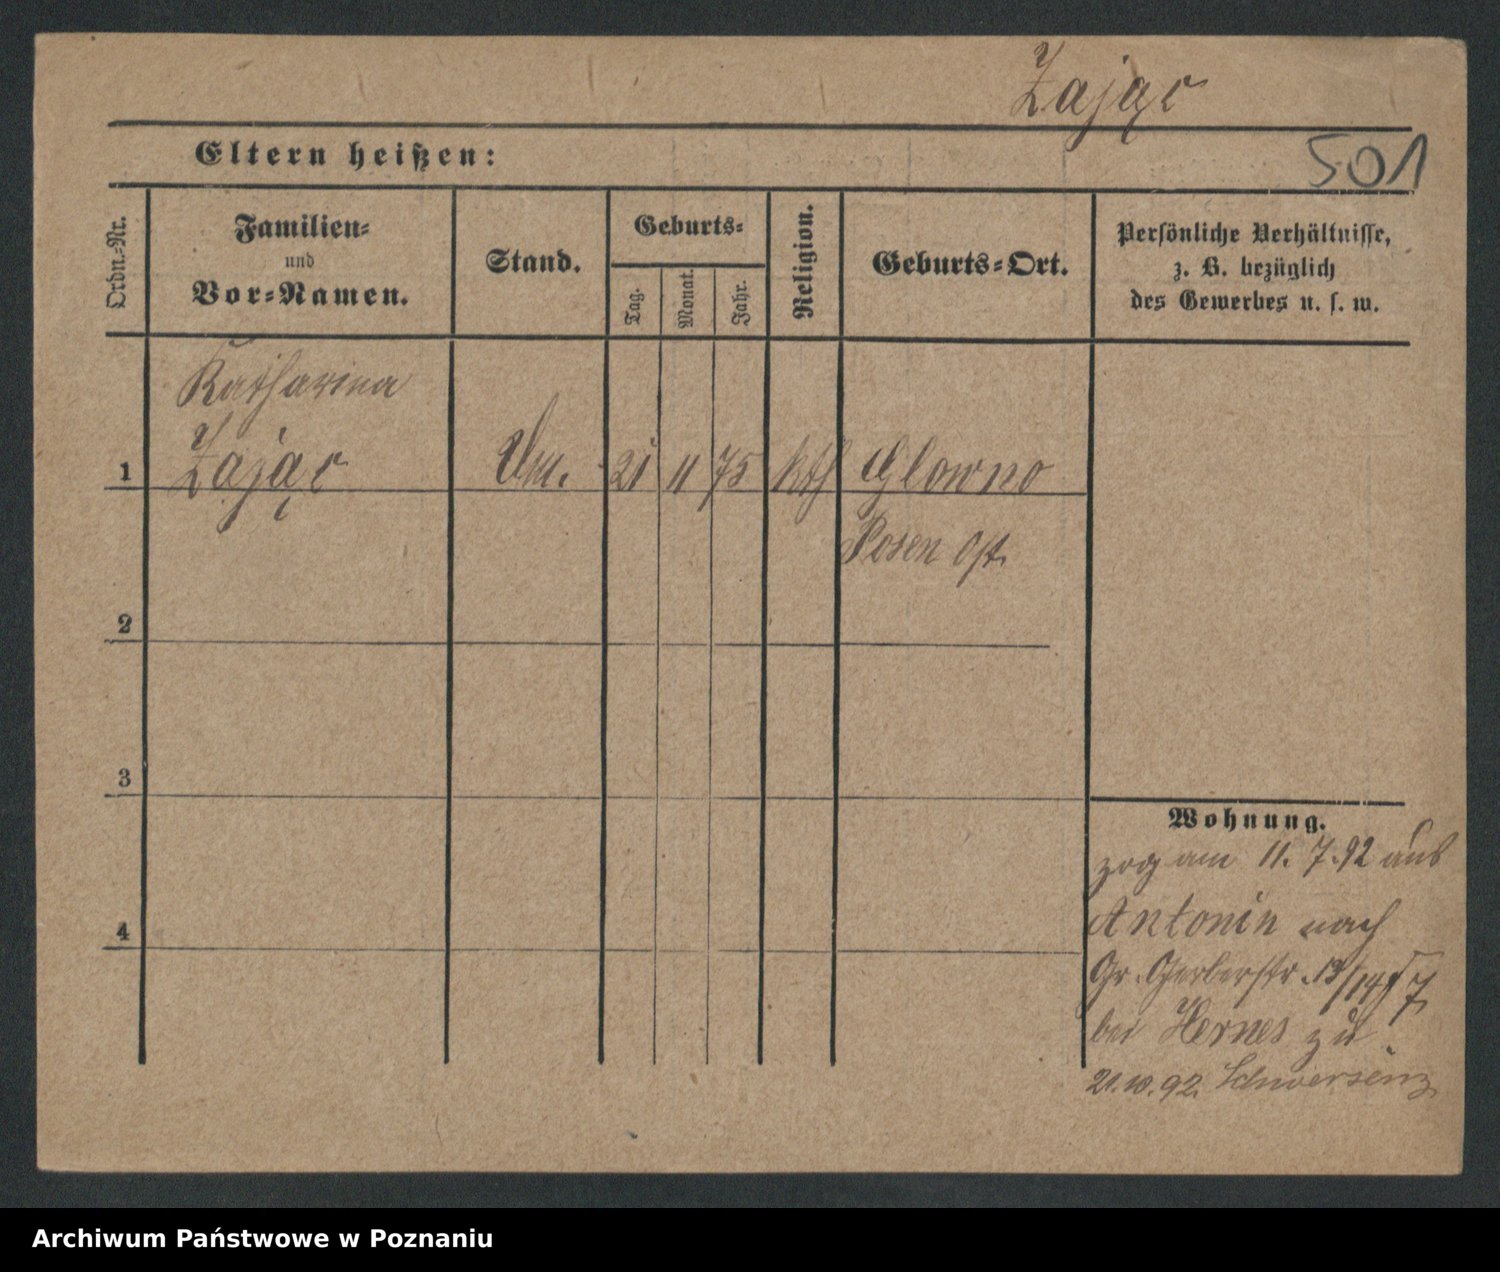 Zając
501
Eltern heißen:
Ordn.-Nr.
Familien-
und
Vor-Namen.
Stand.
Geburts-
Tag.
Monat.
Jahr.
Religion.
Geburts-Ort.
Persönliche Verhältnisse,
z. B. bezüglich
des Gewerbes u. s. w.
Katharina
1 Zając 21 11 75 kth Glowno
Posen Ost.
2
3
4
Wohnung.
zog am 11. 7. 92 aus
Antonin nach
Gr. Gerberstr. 13/14 7
bei Hernes zu
21.10.92 Schwersenz
Archiwum Państwowe w Poznaniu